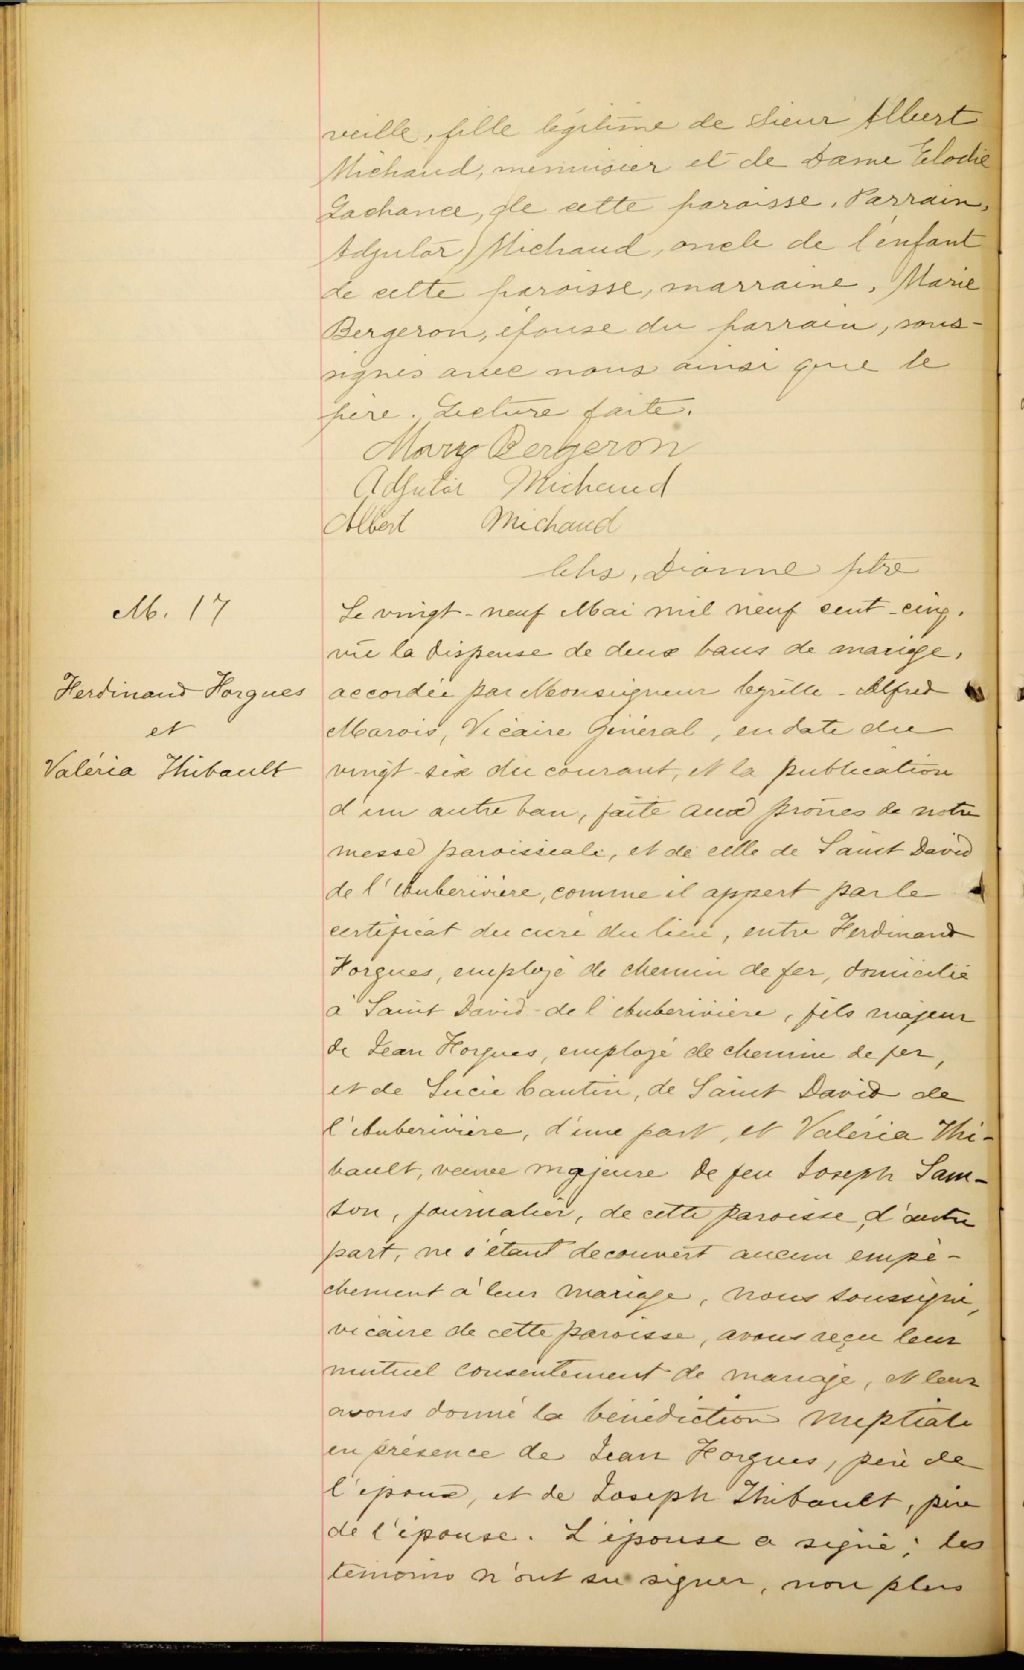 veille, fille légitime de Sieur Albert
Michaud, menuisier et de Dame Elodie
Lachance, de cette paroisse. Parrain,
Adjutor Michaud, oncle de l'enfant
de cette paroisse, marraine, Marie
Bergeron, épouse du parrain, sous-
signés avec nous ainsi que le
père. Lecture faite.
Mary Bergeron
Adjutor Michaud
Albert Michaud
Chs, Dionne ptre
M. 17
Ferdinand Forgues
et
Valéria Thibault
Le vingt-neuf Mai mil neuf cent-cinq,
vu la dispense de deux bans de mariage,
accordée par Monseigneur Cyrille-Alfred
Marois, Vicaire Général, en date du
vingt-six du courant, et la publication
d'un autre ban, faite aux prônes de notre
messe paroissiale, et de celle de Saint David
de l'Auberivière, comme il appert par le
certificat du curé du lieu, entre Ferdinand
Forgues, employé de chemin de fer, domicilié
à Saint David-de l'Auberivière, fils majeur
de Jean Forgues, employé de chemin de fer,
et de Lucie Cantin, de Saint David de
l'Auberivière, d'une part, et Valéria Thi-
bault, veuve majeure de feu Joseph Sam-
son, journalier, de cette paroisse, d'autre
part, ne s'étant découvert aucun empê-
chement à leur mariage, nous soussigné,
vicaire de cette paroisse, avons reçu leur
mutuel consentement de mariage, et leur
avons donné la bénédiction nuptiale
en présence de Jean Forgues, père de
l'époux, et de Joseph Thibault, père
de l'épouse. L'épouse a signé; les
témoins n'ont su signer, non plus